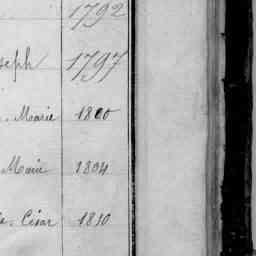 1792
seph 1797
Marie 1800
Marie 1804
César 1810